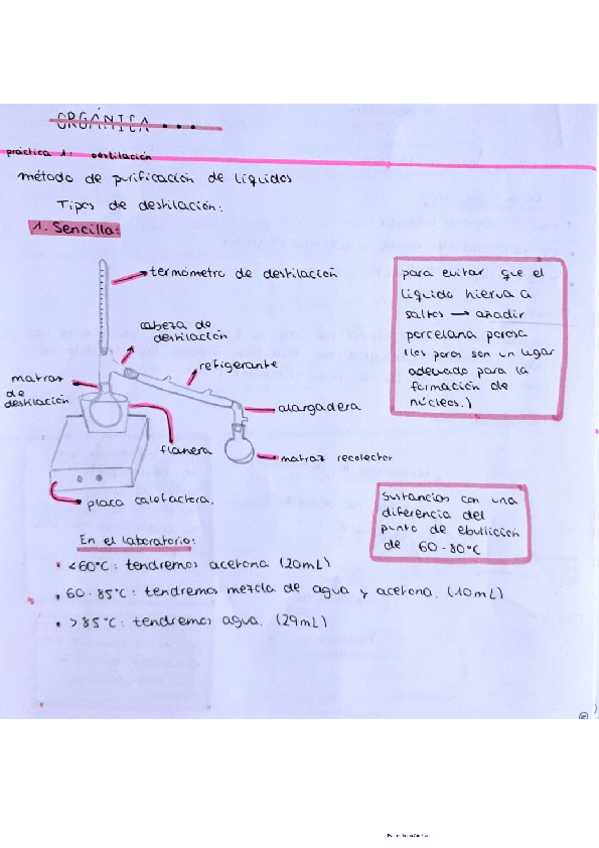 ORGÁNICA...
práctica 1: destilación
método de purificación de líquidos
Tipos de destilación:
1. Sencilla:
termómetro de destilación
cabeza de
destilación
refrigerante
matraz
de
destilación
alargadera
flanera
matraz recolector
placa calefactora.
para evitar que el
líquido hierva a
saltos → añadir
porcelana porosa
(los poros son un lugar
adecuado para la
formación de
núcleos.)
Sustancias con una
diferencia del
punto de ebullición
de 60-80°C
En el laboratorio:
• <60°C: tendremos acetona (20mL)
• 60-85°C: tendremos mezcla de agua y acetona. (10mL)
• >85°C: tendremos agua. (29mL)